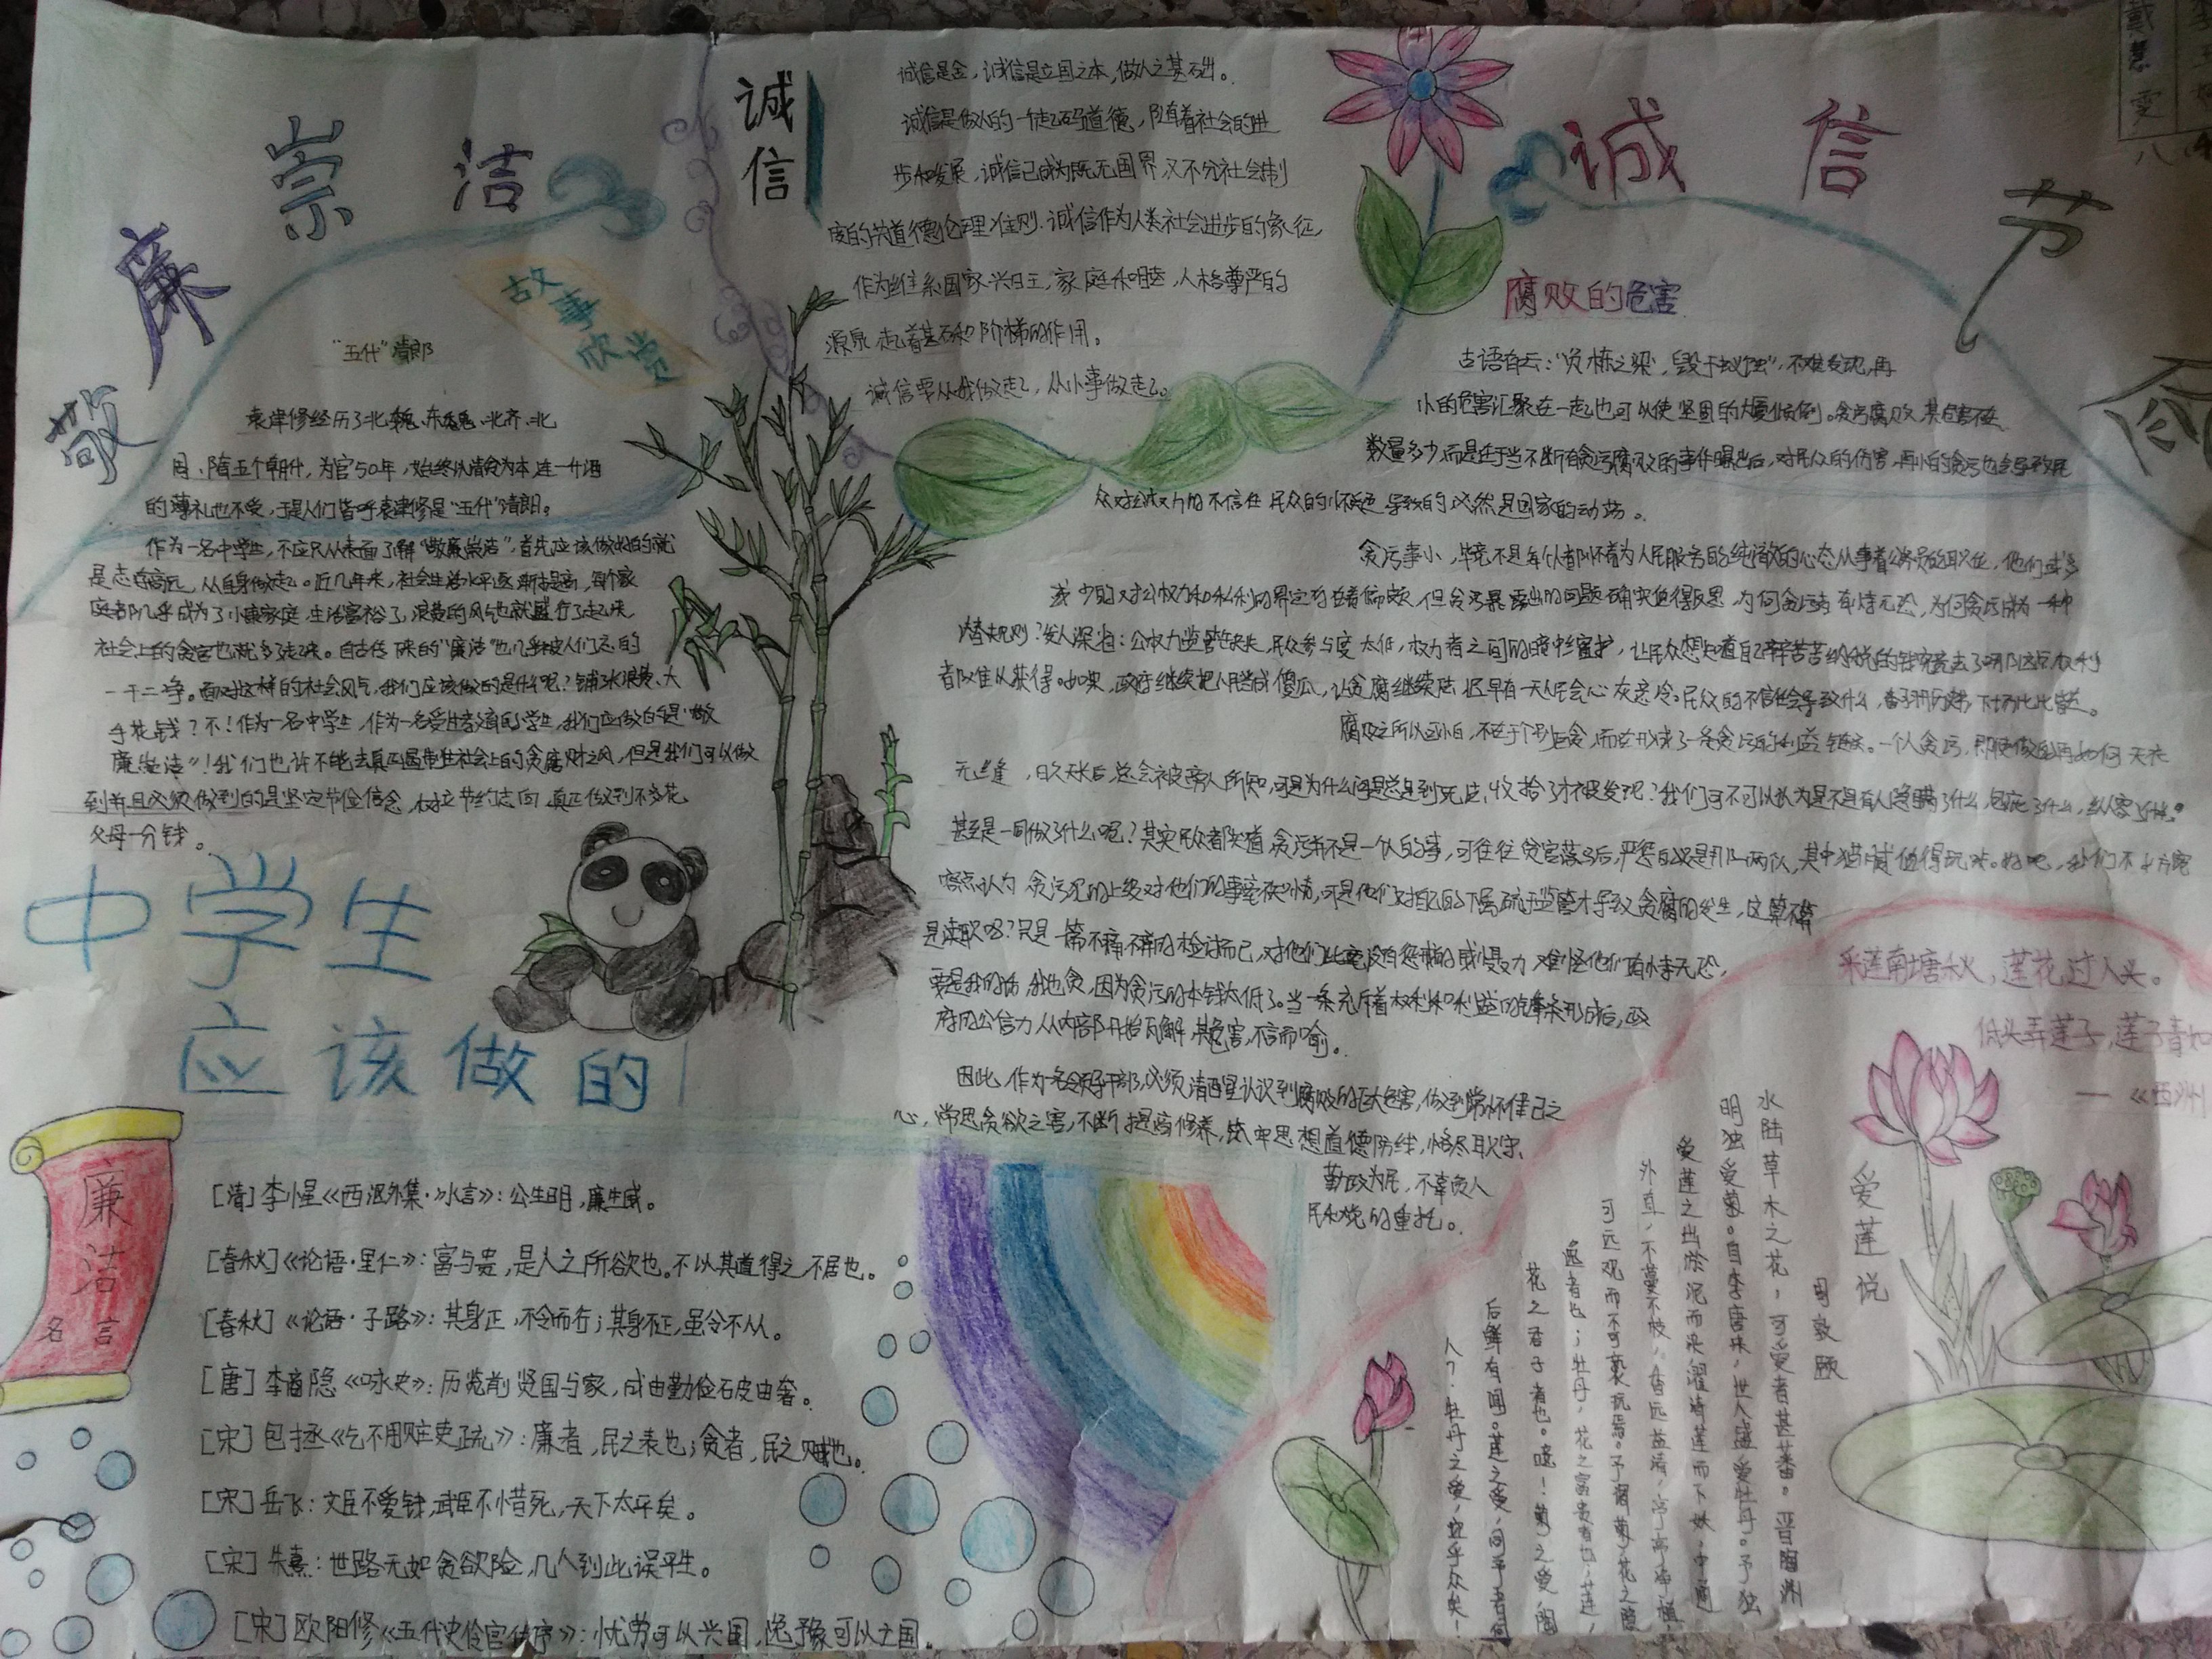 敬廉崇洁
诚信
诚信节俭
戴慧雯
故事欣赏
"五代"清郎
袁津修经历了北魏、东魏、北齐、北
周、隋五个朝代，为官50年，始终以清贫为本，连一升酒
的薄礼也不受，于是人们皆呼袁津修是"五代"清郎。
作为一名中学生，不应只从表面了解"敬廉崇洁"，首先应该做好的就
是志存高远，从自身做起。近几年来，社会生活水平逐渐提高，每个家
庭都几乎成为了小康家庭，生活富裕了，浪费的风气也就盛行了起来，
社会上的贪官也就多了起来。自古传下来的"廉洁"也几乎被人们忘的
一干二净。面对这样的社会风气，我们应该做的是什么呢？铺张浪费、大
手花钱？不！作为一名中学生，作为一名受生教育的学生，我们应做的是"敬
廉崇洁"！我们也许不能去真正遏制住社会上的贪腐财之风，但是我们可以做
到并且必须做到的是坚定节俭信念，树立节约志向，真正做到不多花
父母一分钱。
中学生
应该做的
诚信是金，诚信是立国之本，做人之基础。
诚信是做人的一个起码道德，随着社会的进
步和发展，诚信已成为既无国界，又不分社会制
度的共道德伦理准则。诚信作为人类社会进步的象征，
作为维系国家兴旺，家庭和睦，人格尊严的
源泉，起着基石和阶梯的作用。
诚信要从我做起，从小事做起。
腐败的危害
古语有云："负栋之梁，毁于蚁蚀"，不难发现，再
小的危害汇聚在一起也可以使坚固的大厦倾倒。贪污腐败，其危害不在
数量多少，而是在于当不断有贪污腐败的事件曝出后，对民众的伤害，再小的贪污也会导致民
众对公权力的不信任，民众的怀疑导致的必然是国家的动荡。
贪污事小，毕竟不是每个人都怀着为人民服务的纯洁的心态从事着公务员的职位，他们或多
或少的对公权力和私利的界定存在着偏颇，但贪污暴露出的问题确实值得反思，为何贪污者有恃无恐，为何贪污成为一种
潜规则？发人深省：公权力监管缺失，民众参与度太低，权力者之间的暗中维护，让民众想知道自己辛辛苦苦纳税的钱究竟去了哪那这点权利
都难以获得。如果，政府继续把人民当成傻瓜，让贪腐继续，迟早有一天人民会心灰意冷。民众的不信任会导致什么，看看历史，下场比比皆是。
腐败之所以可怕，不在于个别巨贪，而在形成了一条贪污的利益链。一个人贪污，即便做的再如何天衣
无缝，日久天长后，总会被旁人所知，可是为什么问题总是到无法收拾了才被发现？我们可不可以认为是不是有人隐瞒了什么，包庇了什么，纵容了什么，
甚至是一同做了什么呢？其实民众都知道，贪污并不是一个人的事，可往往贪官落马后，严惩的只是那一两个人，其中猫腻值得玩味。好吧，我们不妨
认为贪污犯的上级对他们的事毫不知情，可是他们对自己的下属疏于监管才导致贪腐的发生，这算不算
是渎职呢？只是一篇不痛不痒的检讨而已，对他们此毫没有惩罚的威慑力，难怪他们有恃无恐，
要是我的话，我也贪，因为贪污的本钱太低了。当一条充斥着权利和利益的链条形成后，政
府的公信力从内部开始瓦解，其危害，不言而喻。
因此，作为一名领导干部，必须清醒认识到腐败的巨大危害，做到常怀律己之
心，常思贪欲之害，不断提高修养，筑牢思想道德防线，恪尽职守、
勤政为民，不辜负人
民和党的重托。
廉洁
名言
[清]李小星《西沤外集·冰言》：公生明，廉生威。
[春秋]《论语·里仁》：富与贵，是人之所欲也。不以其道得之，不居也。
[春秋]《论语·子路》：其身正，不令而行；其身不正，虽令不从。
[唐]李商隐《咏史》：历览前贤国与家，成由勤俭破由奢。
[宋]包拯《乞不用赃吏疏》：廉者，民之表也；贪者，民之贼也。
[宋]岳飞：文臣不爱钱，武臣不惜死，天下太平矣。
[宋]朱熹：世路无如贪欲险，几人到此误平生。
[宋]欧阳修《五代史伶官传序》：忧劳可以兴国，逸予豫可以亡国。
采莲南塘秋，莲花过人头。
低头弄莲子，莲子青如
——《西洲
爱莲说
周敦颐
水陆草木之花，可爱者甚蕃。晋陶渊
明独爱菊。自李唐来，世人盛爱牡丹。予独
爱莲之出淤泥而不染，濯清莲而不妖，中通
外直，不蔓不枝，香远益清，亭亭净植，
可远观而不可亵玩焉。予谓菊，花之隐
逸者也；牡丹，花之富贵者也；莲，
花之君子者也。噫！菊之爱，陶
后鲜有闻。莲之爱，同予者何
人？牡丹之爱，宜乎众矣！